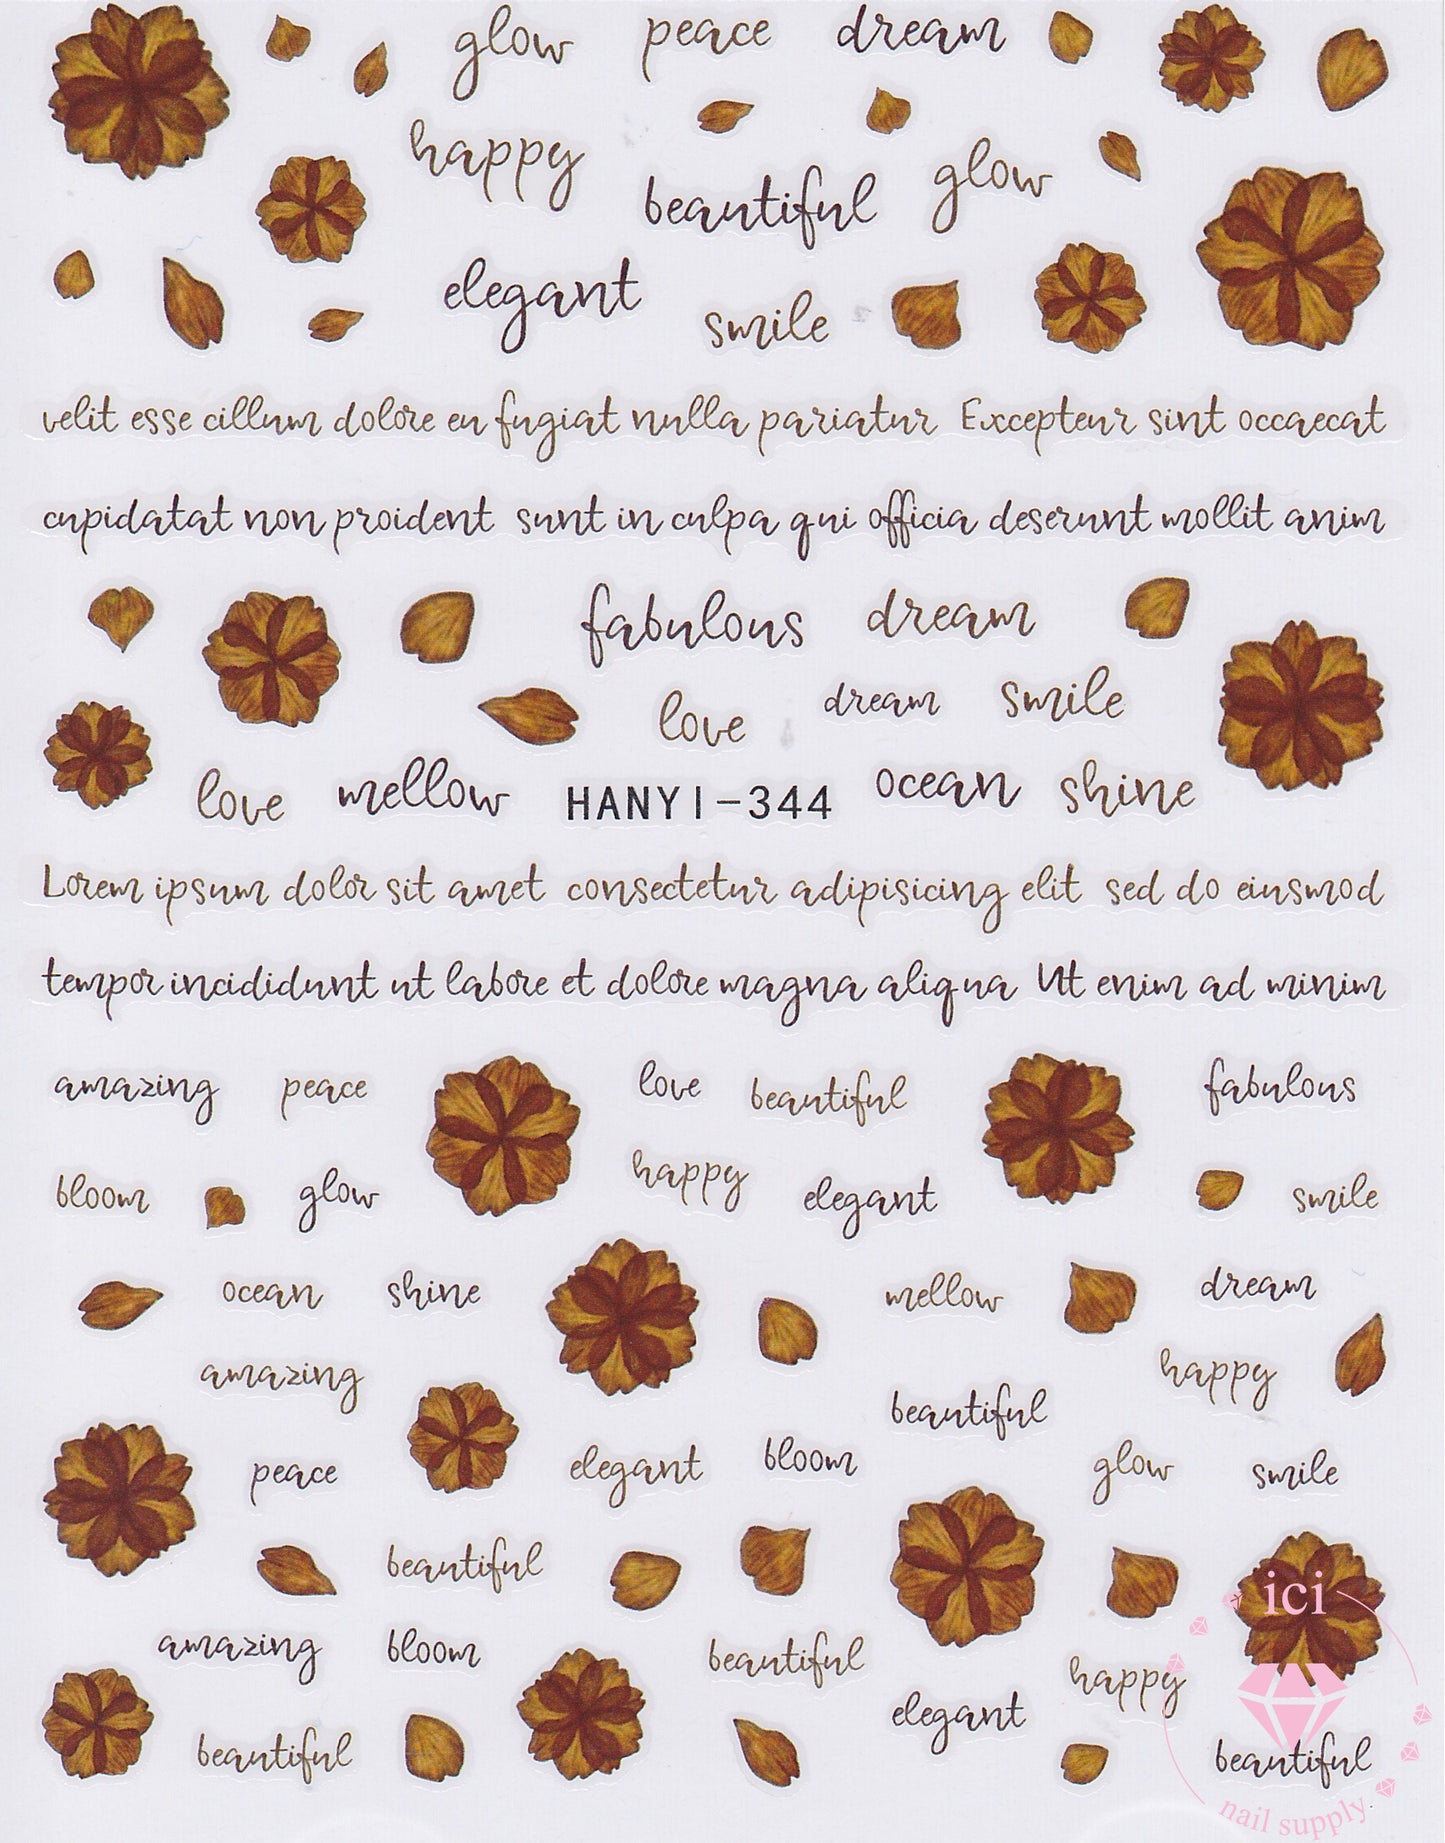 glow peace dream
happy
beautiful glow
elegant
smile
velit esse cillum dolore eu fugiat nulla pariatur Excepteur sint occaecat
cupidatat non proident sunt in culpa qui officia deserunt mollit anim
fabulous dream
love dream smile
love mellow HANYI-344 ocean shine
Lorem ipsum dolor sit amet consectetur adipisicing elit sed do eiusmod
tempor incididunt ut labore et dolore magna aliqua Ut enim ad minim
amazing peace love beautiful fabulous
bloom glow happy elegant smile
ocean shine mellow dream
amazing happy
beautiful
peace elegant bloom glow smile
beautiful
ici
amazing bloom beautiful happy
elegant
beautiful beautiful
nail supply